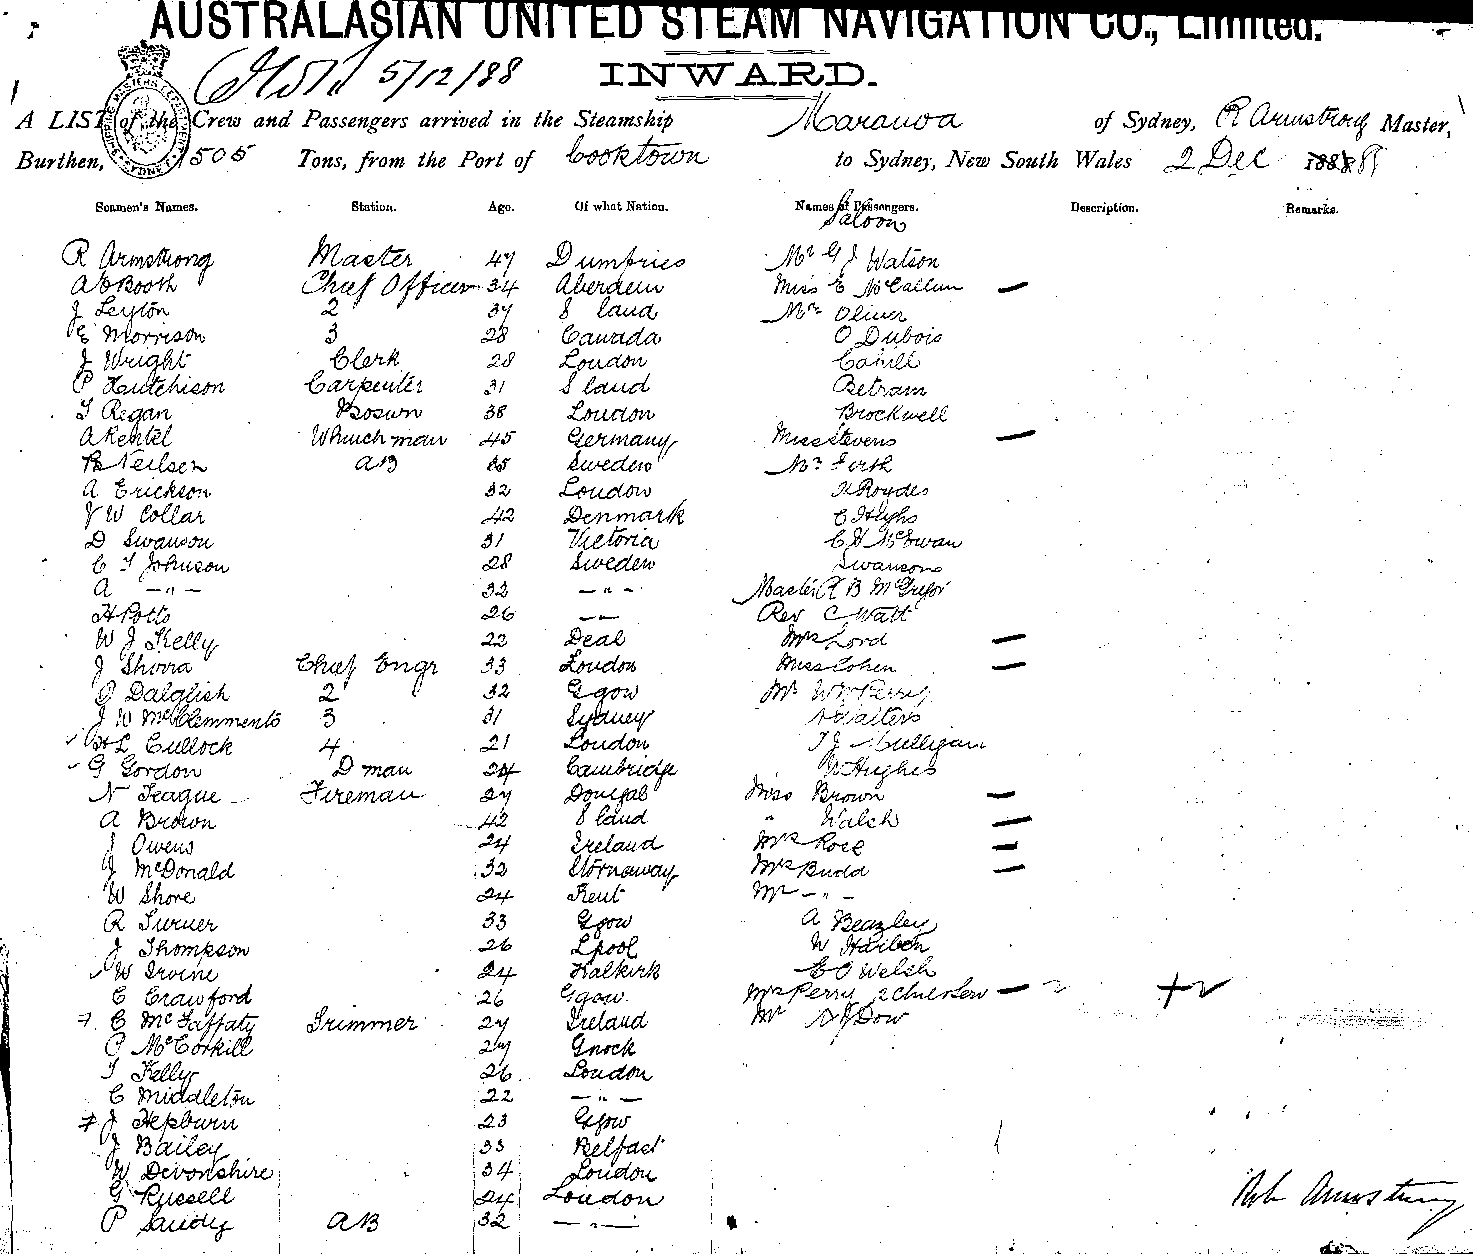 AUSTRALASIAN UNITED STEAM NAVIGATION CO., Limited.
5/12/88 INWARD.
A LIST of the Crew and Passengers arrived in the Steamship Maranoa of Sydney, R Armstrong Master,
Burthen, 1505 Tons, from the Port of Cooktown to Sydney, New South Wales 2 Dec 188
Seamen's Names. Station. Age. Of what Nation. Names of Passengers. Description. Remarks.
Saloon
R Armstrong Master 47 Dumfries Mr G J Watson
A E Booth Chief Officer 34 Aberdeen Miss E McCallum —
J Leyton 2 37 S land Mr Oliver
E Morrison 3 28 Canada O Dubois
J Wright Clerk 28 London Cahill
P Hutchison Carpenter 31 S land Betram
T Regan Bosun 38 London Brockwell
A Rehtel Whinchman 45 Germany Miss Stevens —
Neilsen AB Sweden Mr Firth
A Erickson 32 London H Roydes
W Collar 42 Denmark C Hughs
D Swanson 31 Victoria C H McEwan
C T Johnson 28 Sweden Swansons
A — " — 32 — " — Master R B McGregor
H Potts 26 — — Rev C Watt
W J Kelly 22 Deal Mrs Lord —
J Shirra Chief Engr 33 London Miss Cohen —
J Dalglish 2 32 Ggow Mr W Perry
J W McClemments 3 31 Sydney Walters
H L Cullock 4 21 London T J Mulligan
G Gordon D man 24 Cambridge Hughes
N Teague Fireman 27 Donegal Miss Brown —
A Brown 42 S land " Walsh —
J Owens 24 Ireland Mrs Rose —
J McDonald 32 Stornaway Mrs Budd —
W Shore 24 Kent Mr — " —
R Turner 33 Ggow A Beazley
J Thompson 26 Lpool W
W Irvine 24 Halkirk E O Welsh
C Crawford 26 Ggow. Mrs Perry —
C McTaffaty Trimmer 27 Ireland Mr Dow
P McCorkill 27 Gnock
T Kelly 26 London
C Middleton 22 — " —
J Hepburn 23 Ggow
J Bailey 33 Belfast
W Devonshire 34 London
G Russell 24 London
P Sandy AB 32 — " —
Rob Armstrong